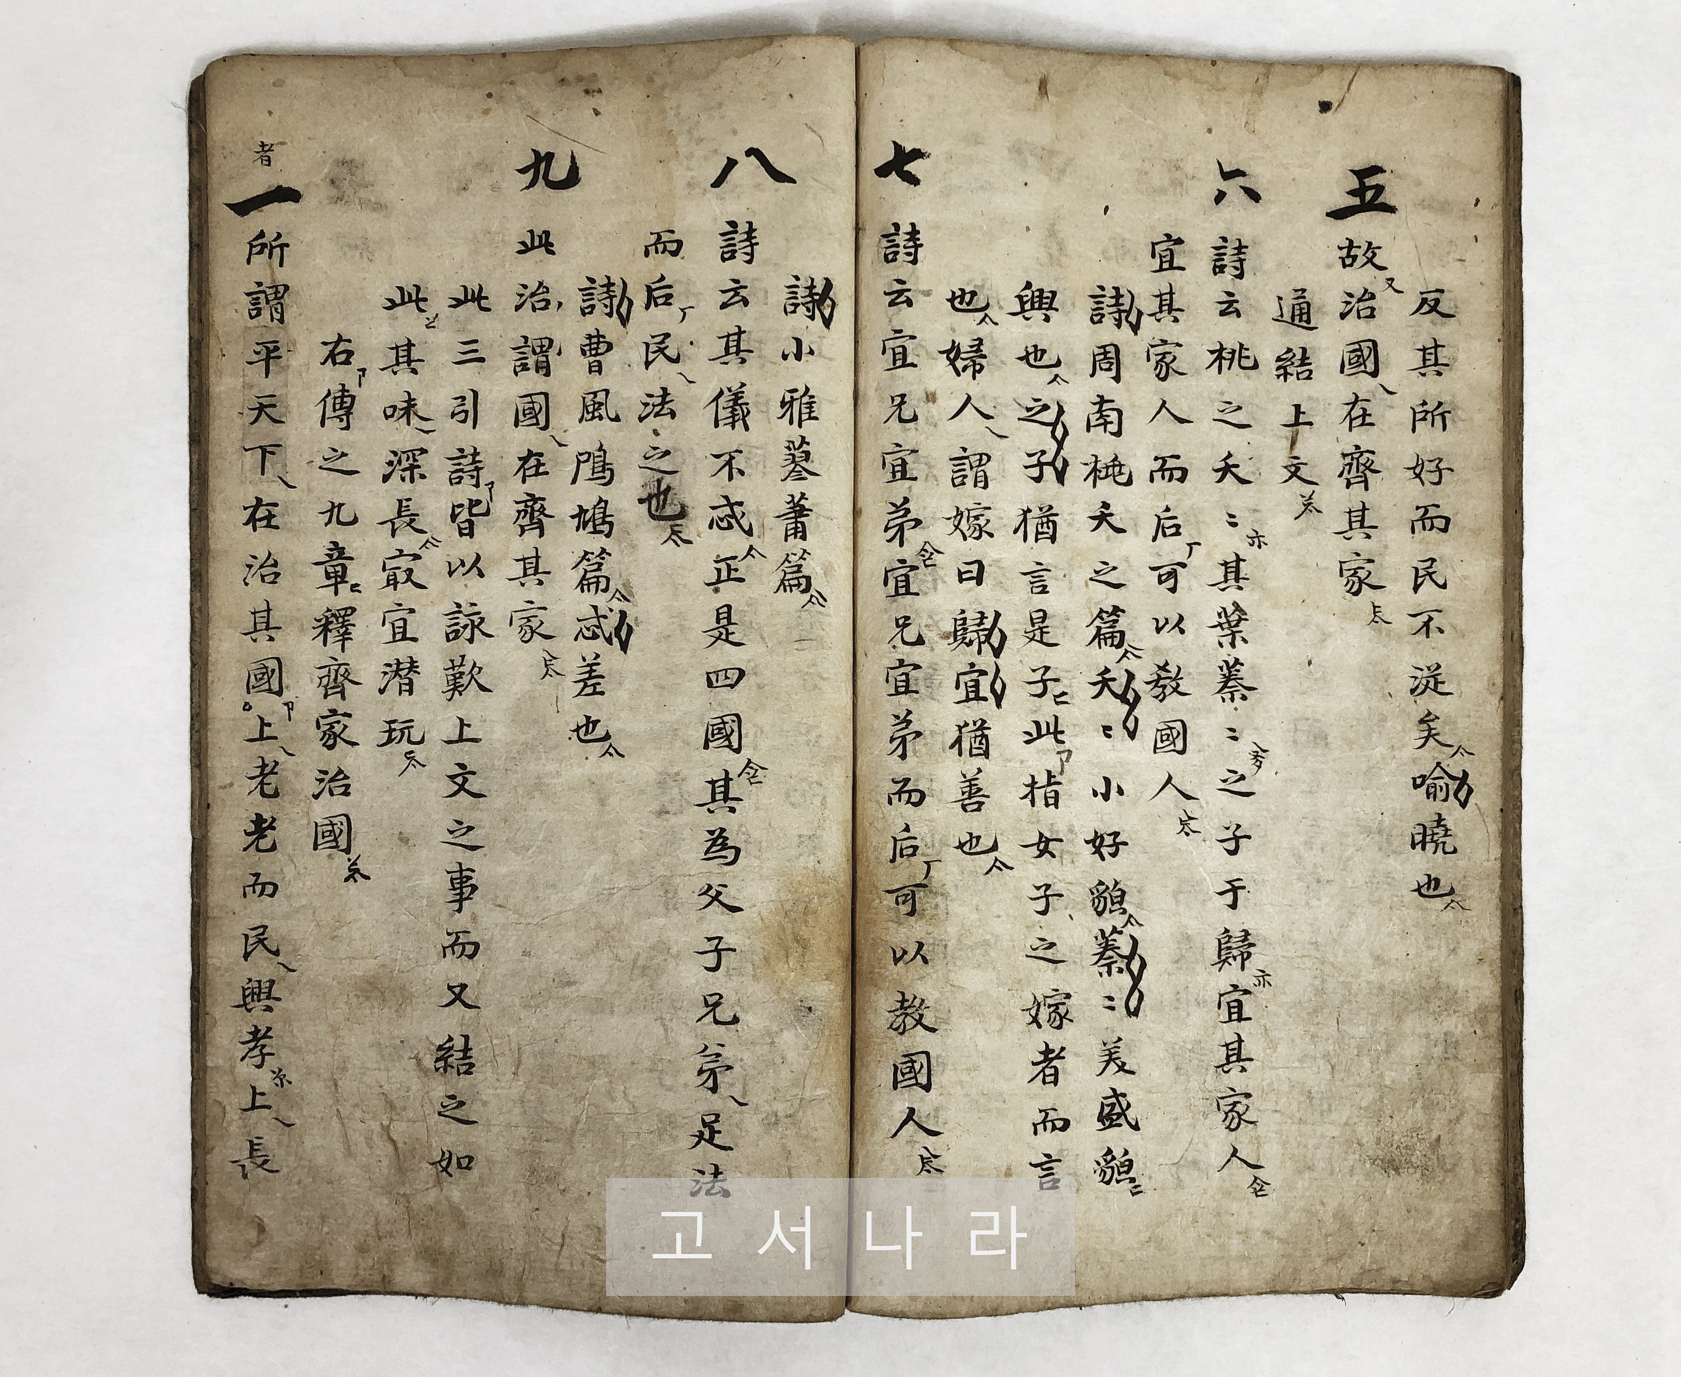 反其所好而民不從矣喻曉也
五故治國在齊其家
通結上文
六詩云桃之夭〻其葉蓁〻之子于歸宜其家人
宜其家人而后可以教國人
詩周南桃夭之篇夭〻小好貌蓁〻美盛貌
興也之子猶言是子此指女子之嫁者而言
也婦人謂嫁曰歸宜猶善也
七詩云宜兄宜弟宜兄宜弟而后可以教國人
詩小雅蓼蕭篇
八詩云其儀不忒正是四國其為父子兄弟足法
而后民法之也
詩曹風鳲鳩篇忒差也
九此治謂國在齊其家
此三引詩皆以詠歎上文之事而又結之如
此其味深長㝡宜潛玩
右傳之九章釋齊家治國
者
一所謂平天下在治其國上老老而民興孝上長
고서나라